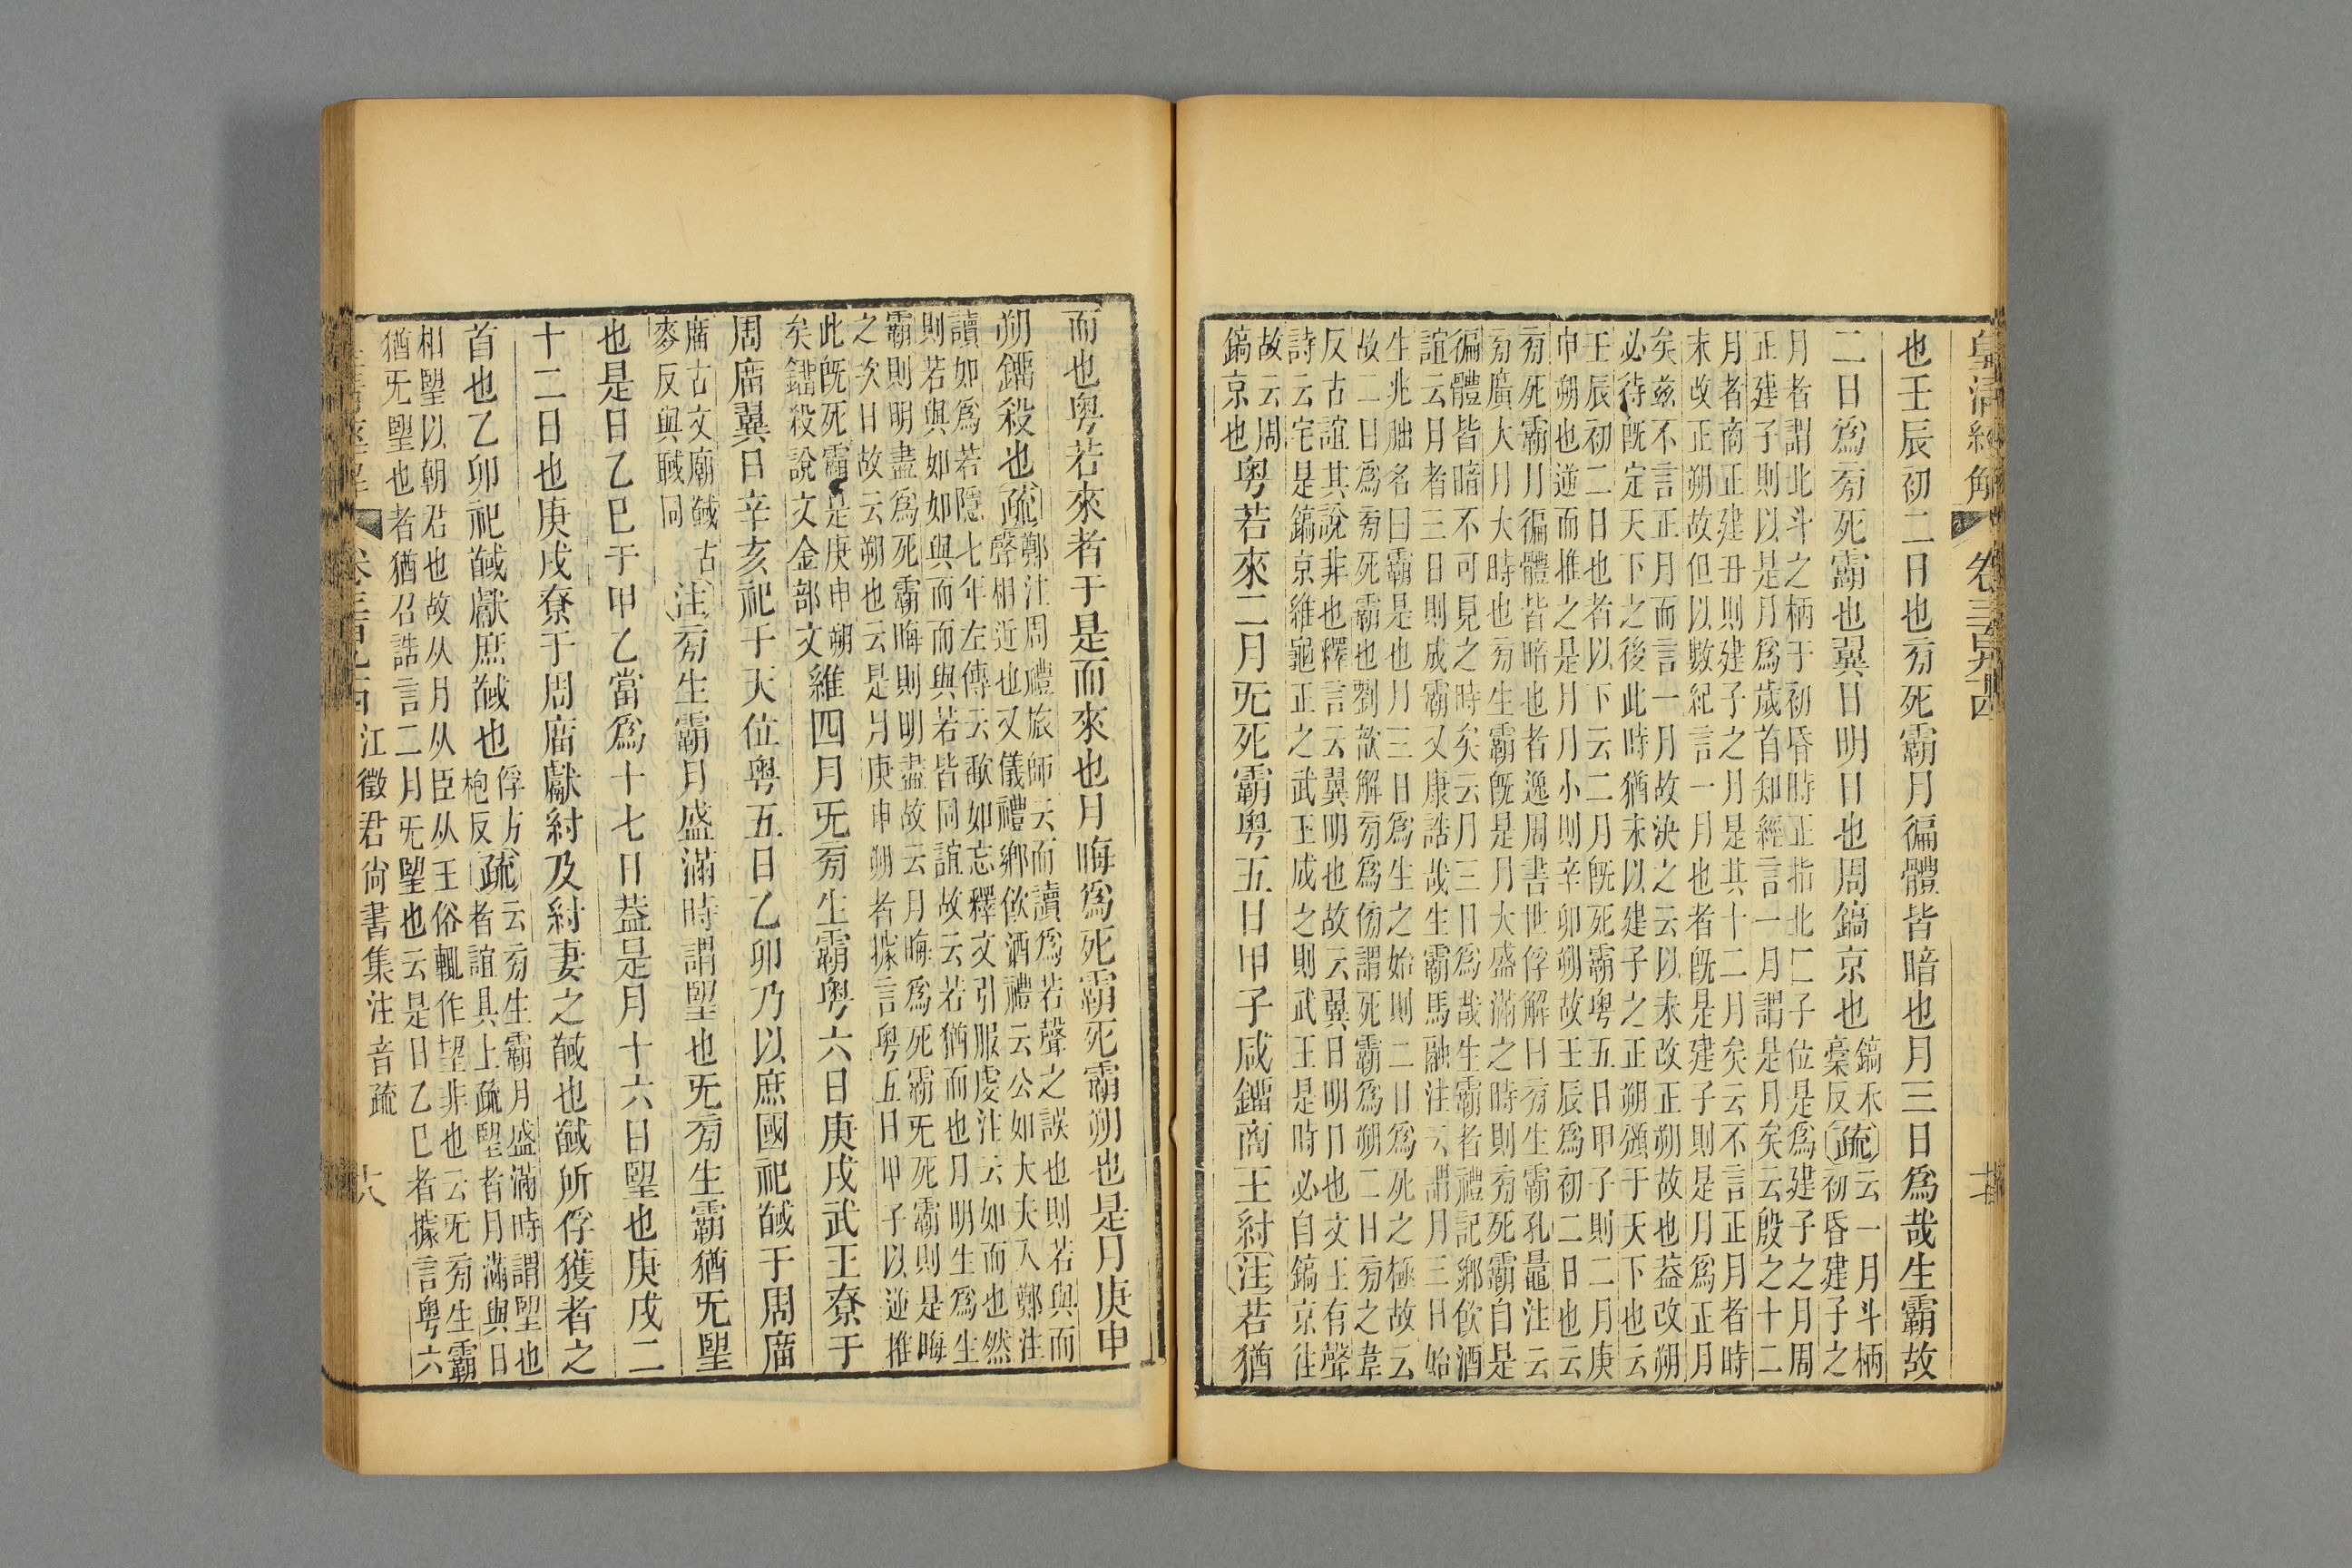 皇清經解 卷三百九十四
也壬辰初二日也㫄死霸月徧體皆暗也月三日爲哉生霸故
二日爲㫄死霸也翼日明日也周鎬京也 鎬禾
稾反 疏 云一月斗柄
初昏建子之
月者謂北斗之柄于初昏時正指北匚子位是爲建子之月周
正建子則以是月爲歲首知經言一月謂是月矣云殷之十二
月者商正建丑則建子之月是其十二月矣云不言正月者時
未改正朔故但以數紀言一月也者旣是建子則是月爲正月
矣玆不言正月而言一月故決之云以未改正朔故也葢改朔
必待旣定天下之後此時猶未以建子之正朔頒于天下也云
壬辰初二日也者以下云二月旣死霸粤五日甲子則二月庚
申朔也逆而推之是月月小則辛卯朔故壬辰爲初二日也云
㫄死霸月徧體皆暗也者逸周書世俘解曰㫄生霸孔鼂注云
㫄廣大月大時也㫄生霸旣是月大盛滿之時則㫄死霸自是
徧體皆暗不可見之時矣云月三日爲哉生霸者禮記鄉飲酒
誼云月者三日則成霸又康誥哉生霸馬融注云謂月三日始
生兆朏名曰霸是也月三日爲生之始則二日爲死之極故云
故二日爲㫄死霸也劉歆解㫄爲傍謂死霸爲朔二日㫄之韋
反古誼其說非也釋言云翼明也故云翼日明日也文王有聲
詩云宅是鎬京維龜正之武王成之則武王是時必自鎬京往
故云周
鎬京也 粤若來二月旡死霸粤五日甲子咸鐂商王紂 注 若猶
而也粤若來者于是而來也月晦爲死霸死霸朔也是月庚申
朔鐂殺也 疏 鄭注周禮旅師云而讀爲若聲之誤也則若與而
聲相近也又儀禮鄉飲酒禮云公如大夫入鄭注
讀如爲若隱七年左傳云歃如忘釋文引服虔注云如而也然
則若與如如與而而與若皆同誼故云若猶而也月明生爲生
霸則明盡爲死霸晦則明盡故云月晦爲死霸旡死霸則是晦
之次日故云朔也云是月庚申朔者據言粤五日甲子以逆推
此旣死霸是庚申朔
矣鐂殺說文金部文 維四月旡㫄生霸粤六日庚戌武王尞于
周庿翼日辛亥祀于天位粤五日乙卯乃以庶國祀馘于周庿
庿古文廟馘古
麥反與聝同 注 㫄生霸月盛滿時謂朢也旡㫄生霸猶旡朢
也是日乙巳于甲乙當爲十七日葢是月十六日朢也庚戌二
十二日也庚戌尞于周庿獻紂及紂妻之馘也馘所俘獲者之
首也乙卯祀馘獻庶馘也 俘方
枹反 疏 云㫄生霸月盛滿時謂朢也
者誼具上疏朢者月滿與日
相朢以朝君也故从月从臣从王俗輒作望非也云旡㫄生霸
猶旡朢也者猶召誥言二月旡朢也云是日乙巳者據言粤六
江徵君尙書集注音疏 十八